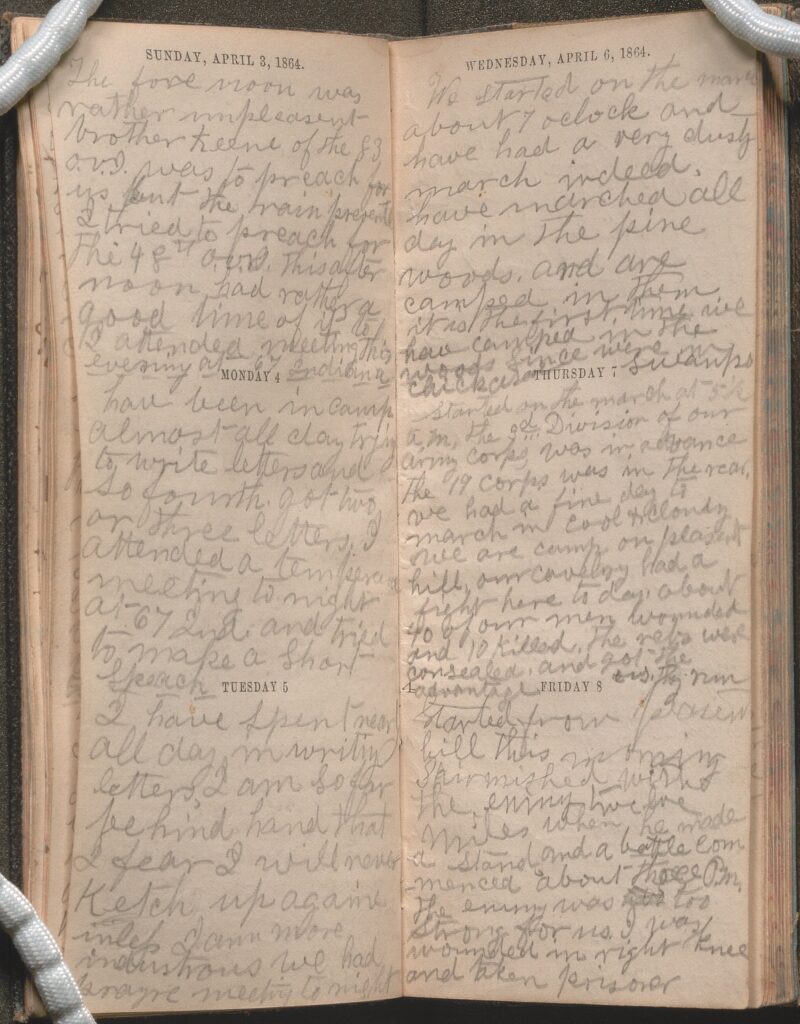 SUNDAY, APRIL 3, 1864.
The fore noon was
rather unpleasent
brother Keene of the 83
O.V.I. was to preach for
us but the rain prevente
I tried to preach for
the 48th O.V.I. this after
noon had rather a
good time of it
I attended meeting this
evening at 67 Indiana
MONDAY 4
have been in camp
almost all day tryin
to write letters and
so fourth. got two
or three letters, I
attended a tempera
meeting to night
at 67 Ind. and tried
to make a short
speach
TUESDAY 5
I have spent near
all day in writing
letters, I am so far
behind hand that
I fear I will never
Ketch up againe
unless I am more
industrous we had
prayre meeting to night
WEDNESDAY, APRIL 6, 1864.
We started on the march
about 7 oclock and
have had a very dusty
march indeed.
have marched all
day in the pine
woods. and are
camped in them
it is the first time we
hav camped in the
woods since were in
chickasaw Swamps
THURSDAY 7
started on the march at 5½
a.m, the 3rd Division of our
army corps was in advance
the 19 corps was in the rear.
we had a fine day to
march in cool & cloudy
we are camp on pleasant
hill, our cavelry had a
fight here to day. about
40 of our men wounded
and 10 killed. the rebs were
consealed. and got the
advantage us. they run
FRIDAY 8
Started from
hill this morning
Skirmished with
the enimy twelve
Miles when he made
a stand and a battle com
menced about three P.m,
the enimy was too
strong for us. I was
wounded in right Knee
and taken prisoner